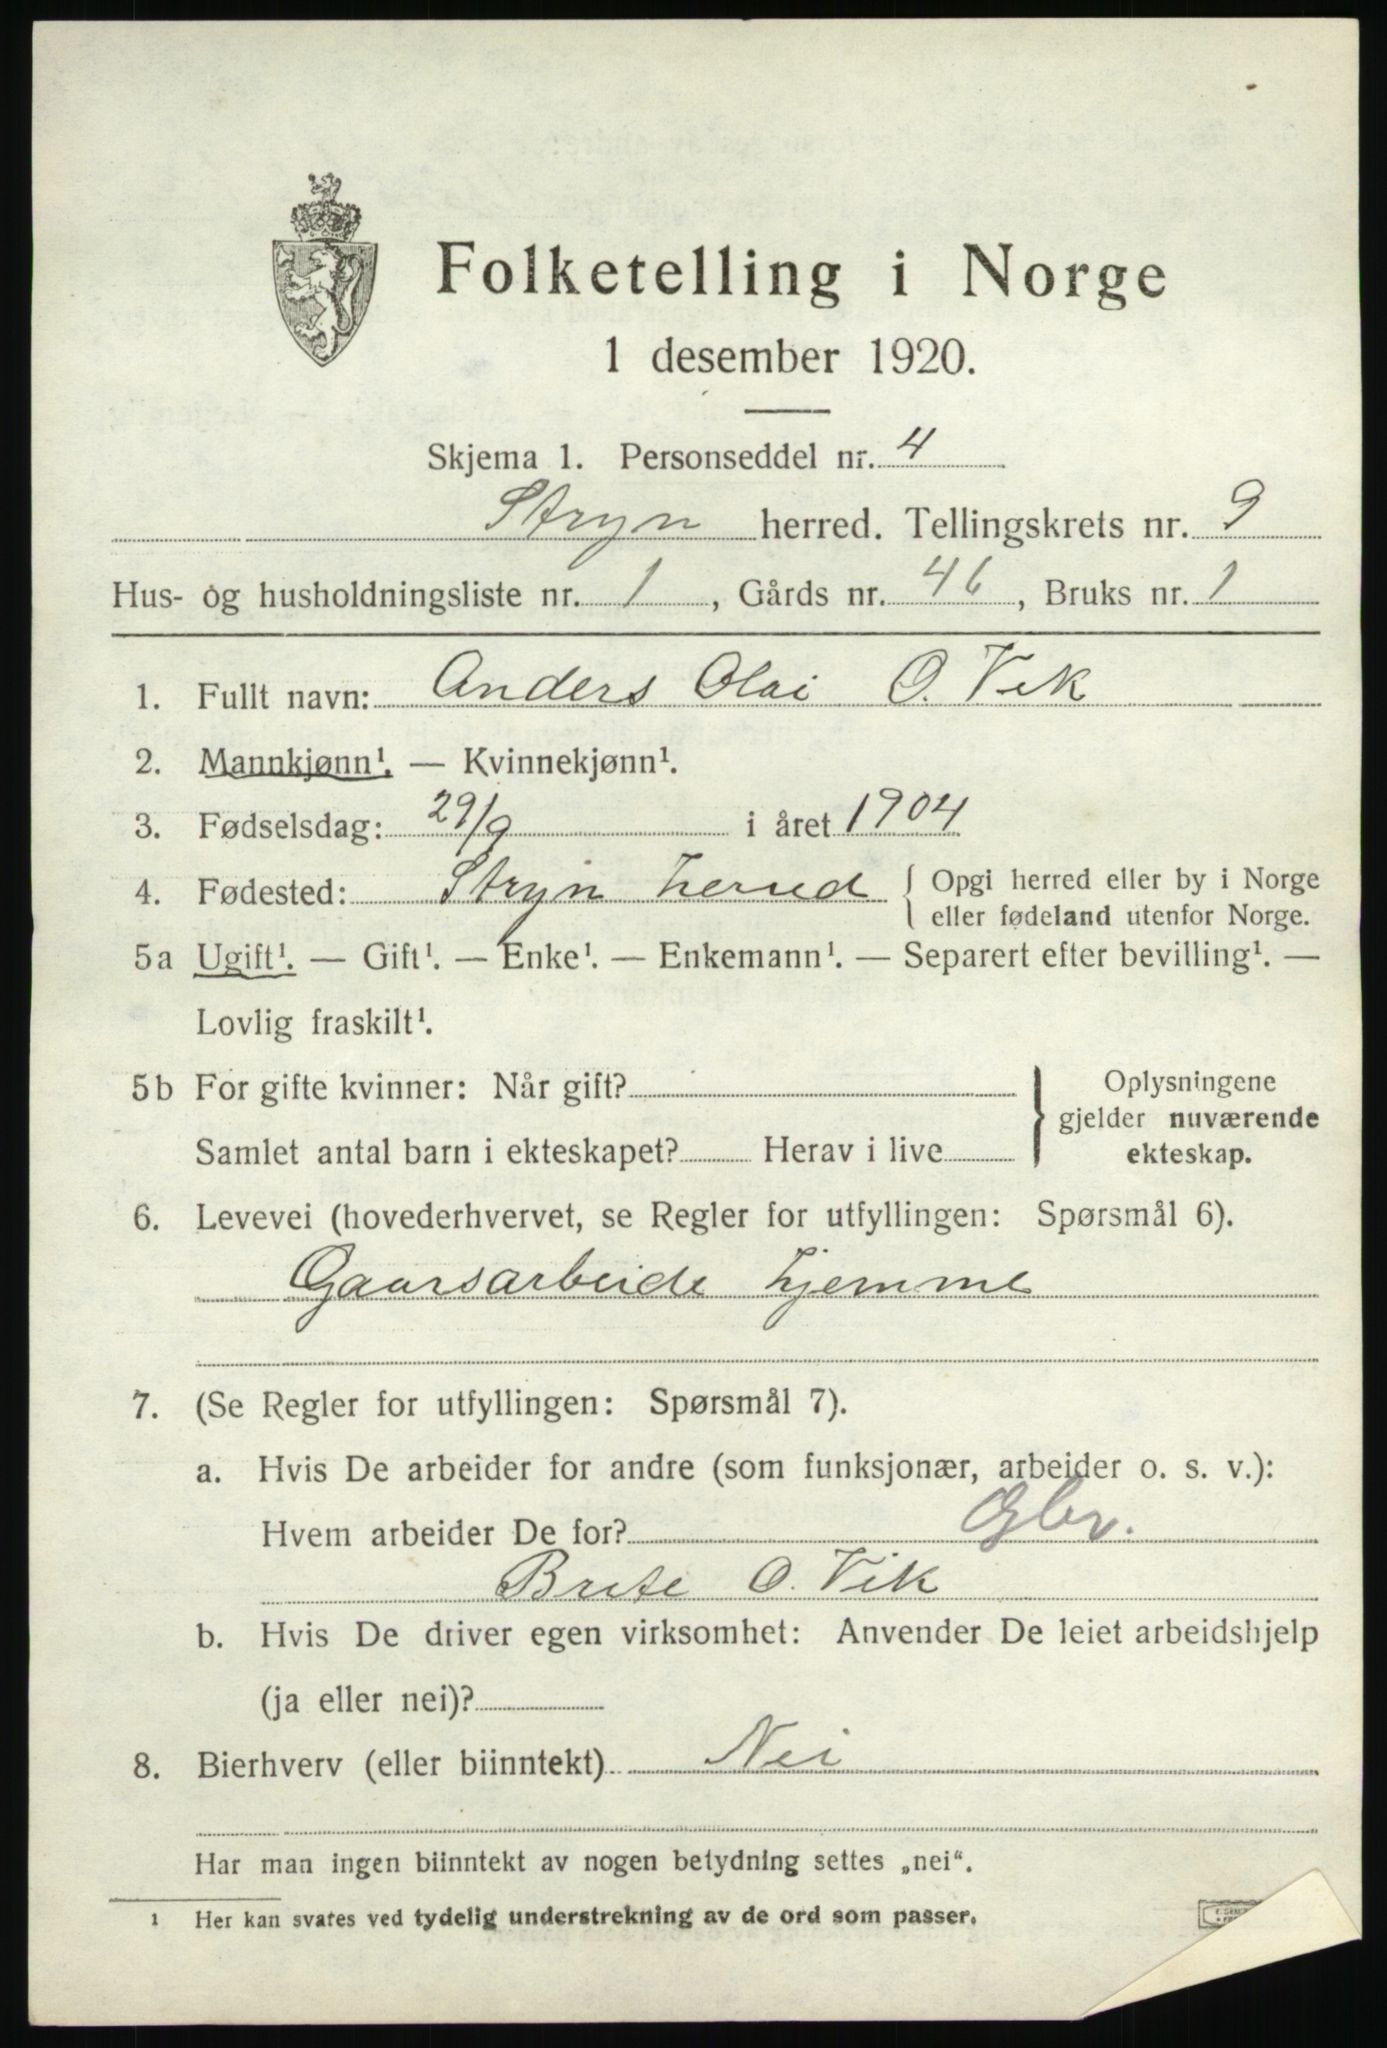 Folketelling i Norge
1 desember 1920.
Skjema 1. Personseddel nr. 4
Stryn herred. Tellingskrets nr. 9
Hus- og husholdningsliste nr. 1, Gårds nr. 46, Bruks nr. 1
1. Fullt navn: Anders Olai O. Vik
2. Mannkjønn¹. — Kvinnekjønn¹.
3. Fødselsdag: 29/9 i året 1904
4. Fødested: Stryn herred { Opgi herred eller by i Norge
eller fødeland utenfor Norge.
5a Ugift¹. — Gift¹. — Enke¹. — Enkemann¹. — Separert efter bevilling¹. —
Lovlig fraskilt¹.
5b For gifte kvinner: Når gift?
Samlet antal barn i ekteskapet? Herav i live
} Oplysningene
gjelder nuværende
ekteskap.
6. Levevei (hovederhvervet, se Regler for utfyllingen: Spørsmål 6).
Gaarsarbeide hjemme
7. (Se Regler for utfyllingen: Spørsmål 7).
a. Hvis De arbeider for andre (som funksjonær, arbeider o. s. v.):
Hvem arbeider De for? Gbr.
Brite O. Vik
b. Hvis De driver egen virksomhet: Anvender De leiet arbeidshjelp
(ja eller nei)?
8. Bierhverv (eller biinntekt) Nei
Har man ingen biinntekt av nogen betydning settes „nei“.
¹ Her kan svares ved tydelig understrekning av de ord som passer.